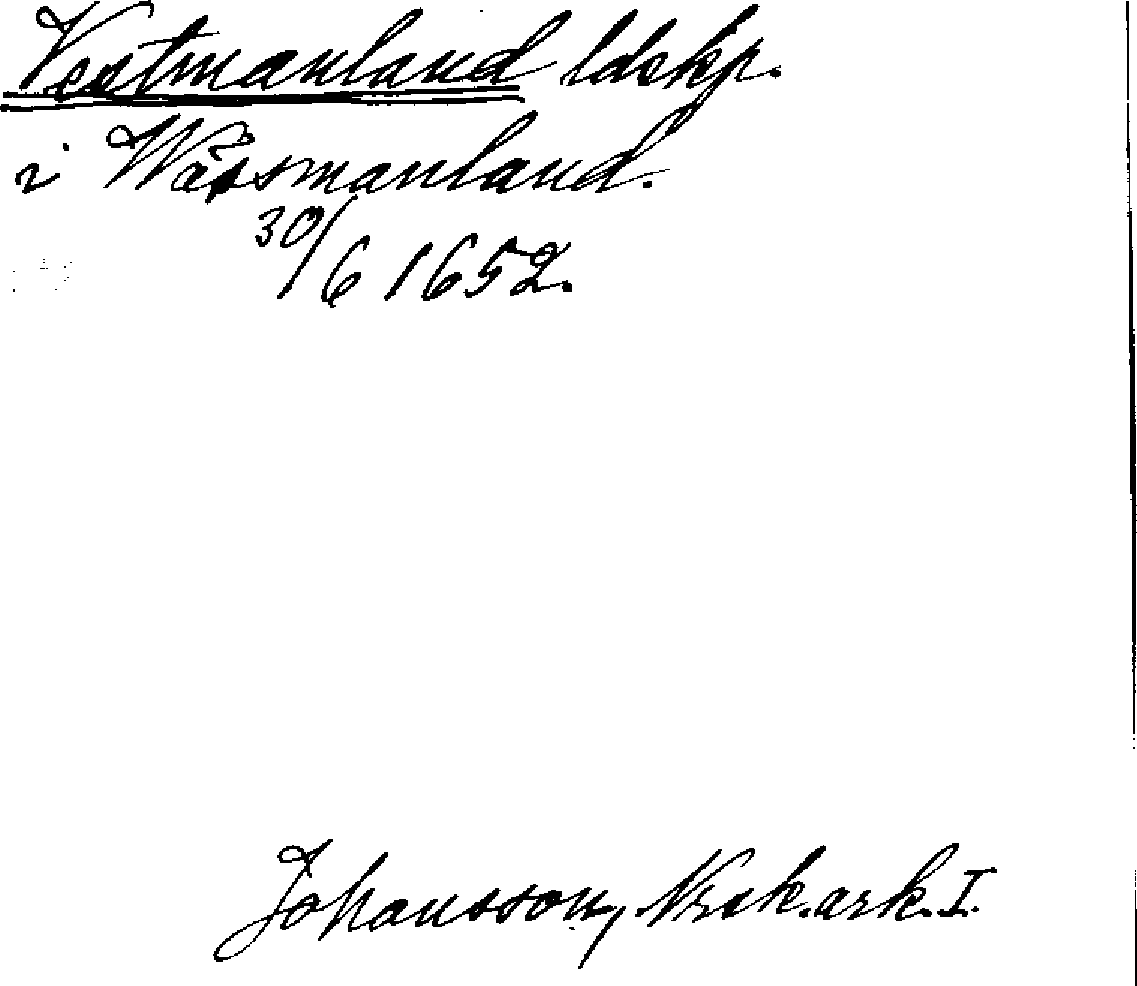 Vestmanland ldskp.
i Wäsmanland.
30/6 1652.
Johansson, Nrsk. ark. I.